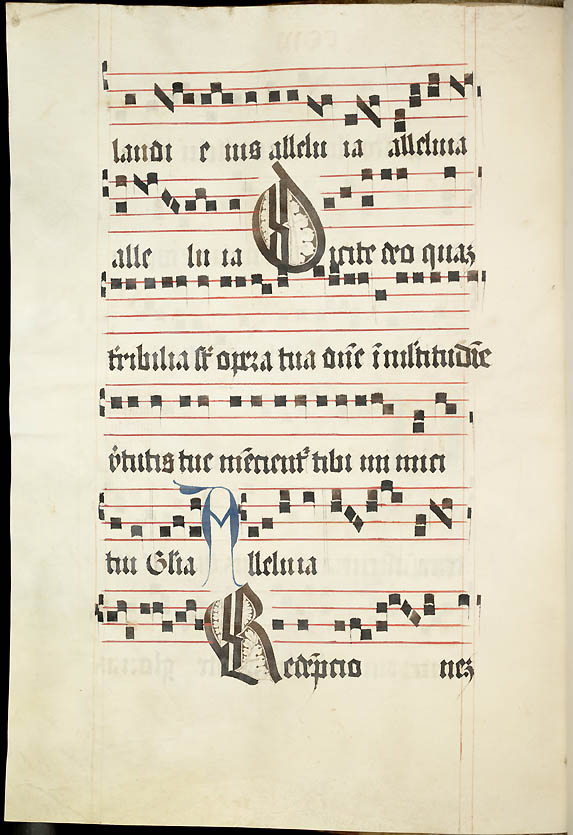 laudi e ius allelu ia alleluia
alle lu ia Dicite deo quaꝫ
t̄ribilia st̄ opera tua dn̄e ī multitudīe
v̄tutis tue mēcient̄ tibi in imici
tui Gl̄ia Alleluia
Redēpcio neꝫ